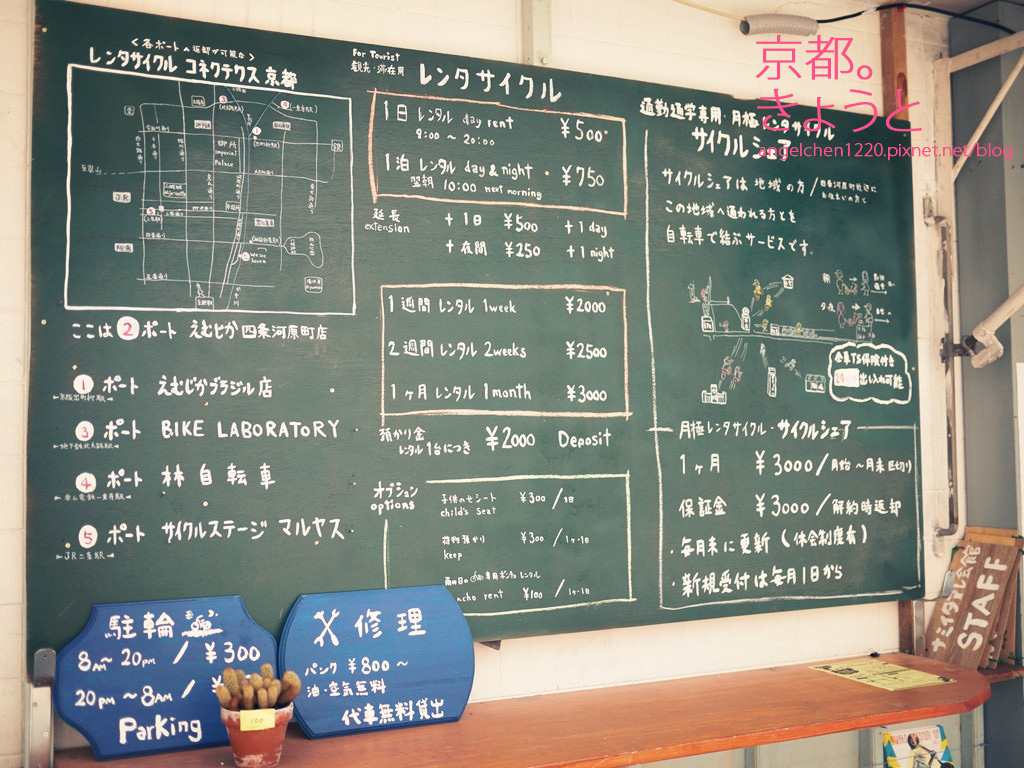 京都。
きょうと
angelchen1220.pixnet.net/blog
<各ポートへ返却が可能な>
レンタサイクル コネクテクス 京都
御所
Imperial
Palace
JR
ここは ② ポート えむじか 四条河原町店
① ポート えむじかブラジル店
③ ポート BIKE LABORATORY
④ ポート 林自転車
⑤ ポート サイクルステージ マルヤス
JR二条駅
For Tourist
観光・滞在用
レンタサイクル
1日 レンタル day rent ¥500
9:00 〜 20:00
1泊 レンタル day & night ・ ¥750
翌朝 10:00 next morning
延長 + 1日 ¥500 + 1 day
extension
+ 夜間 ¥250 + 1 night
1週間 レンタル 1week ¥2000
2週間 レンタル 2weeks ¥2500
1ヶ月 レンタル 1month ¥3000
預かり金
レンタル 1台につき ¥2000 Deposit
オプション
options
子供のせシート ¥300 / 1日
child's Seat
荷物預かり ¥300 / 1ヶ・1日
keep
雨の日の 専用ポンチョ レンタル
ncho rent ¥100 / 1ヶ・1日
通勤通学専用・月極レンタサイクル
サイクルシェア
サイクルシェアは 地域の方 / 四条河原町近辺に
お住まいの方と
この地域へ通われる方とを
自転車で結ぶサービスです。
朝
夕夜
会員TS保険付き
出し入れ可能
月極レンタサイクル・サイクルシェア
1ヶ月 ¥3000 / 月始〜月末区切り
保証金 ¥3000 / 解約時返却
・毎月末に更新 (休会制度有)
・新規受付は毎月1日から
駐輪
8AM〜20PM / ¥300
20PM〜8AM /
Parking
修理
パンク ¥800〜
油・空気 無料
代車無料貸出
100
STAFF